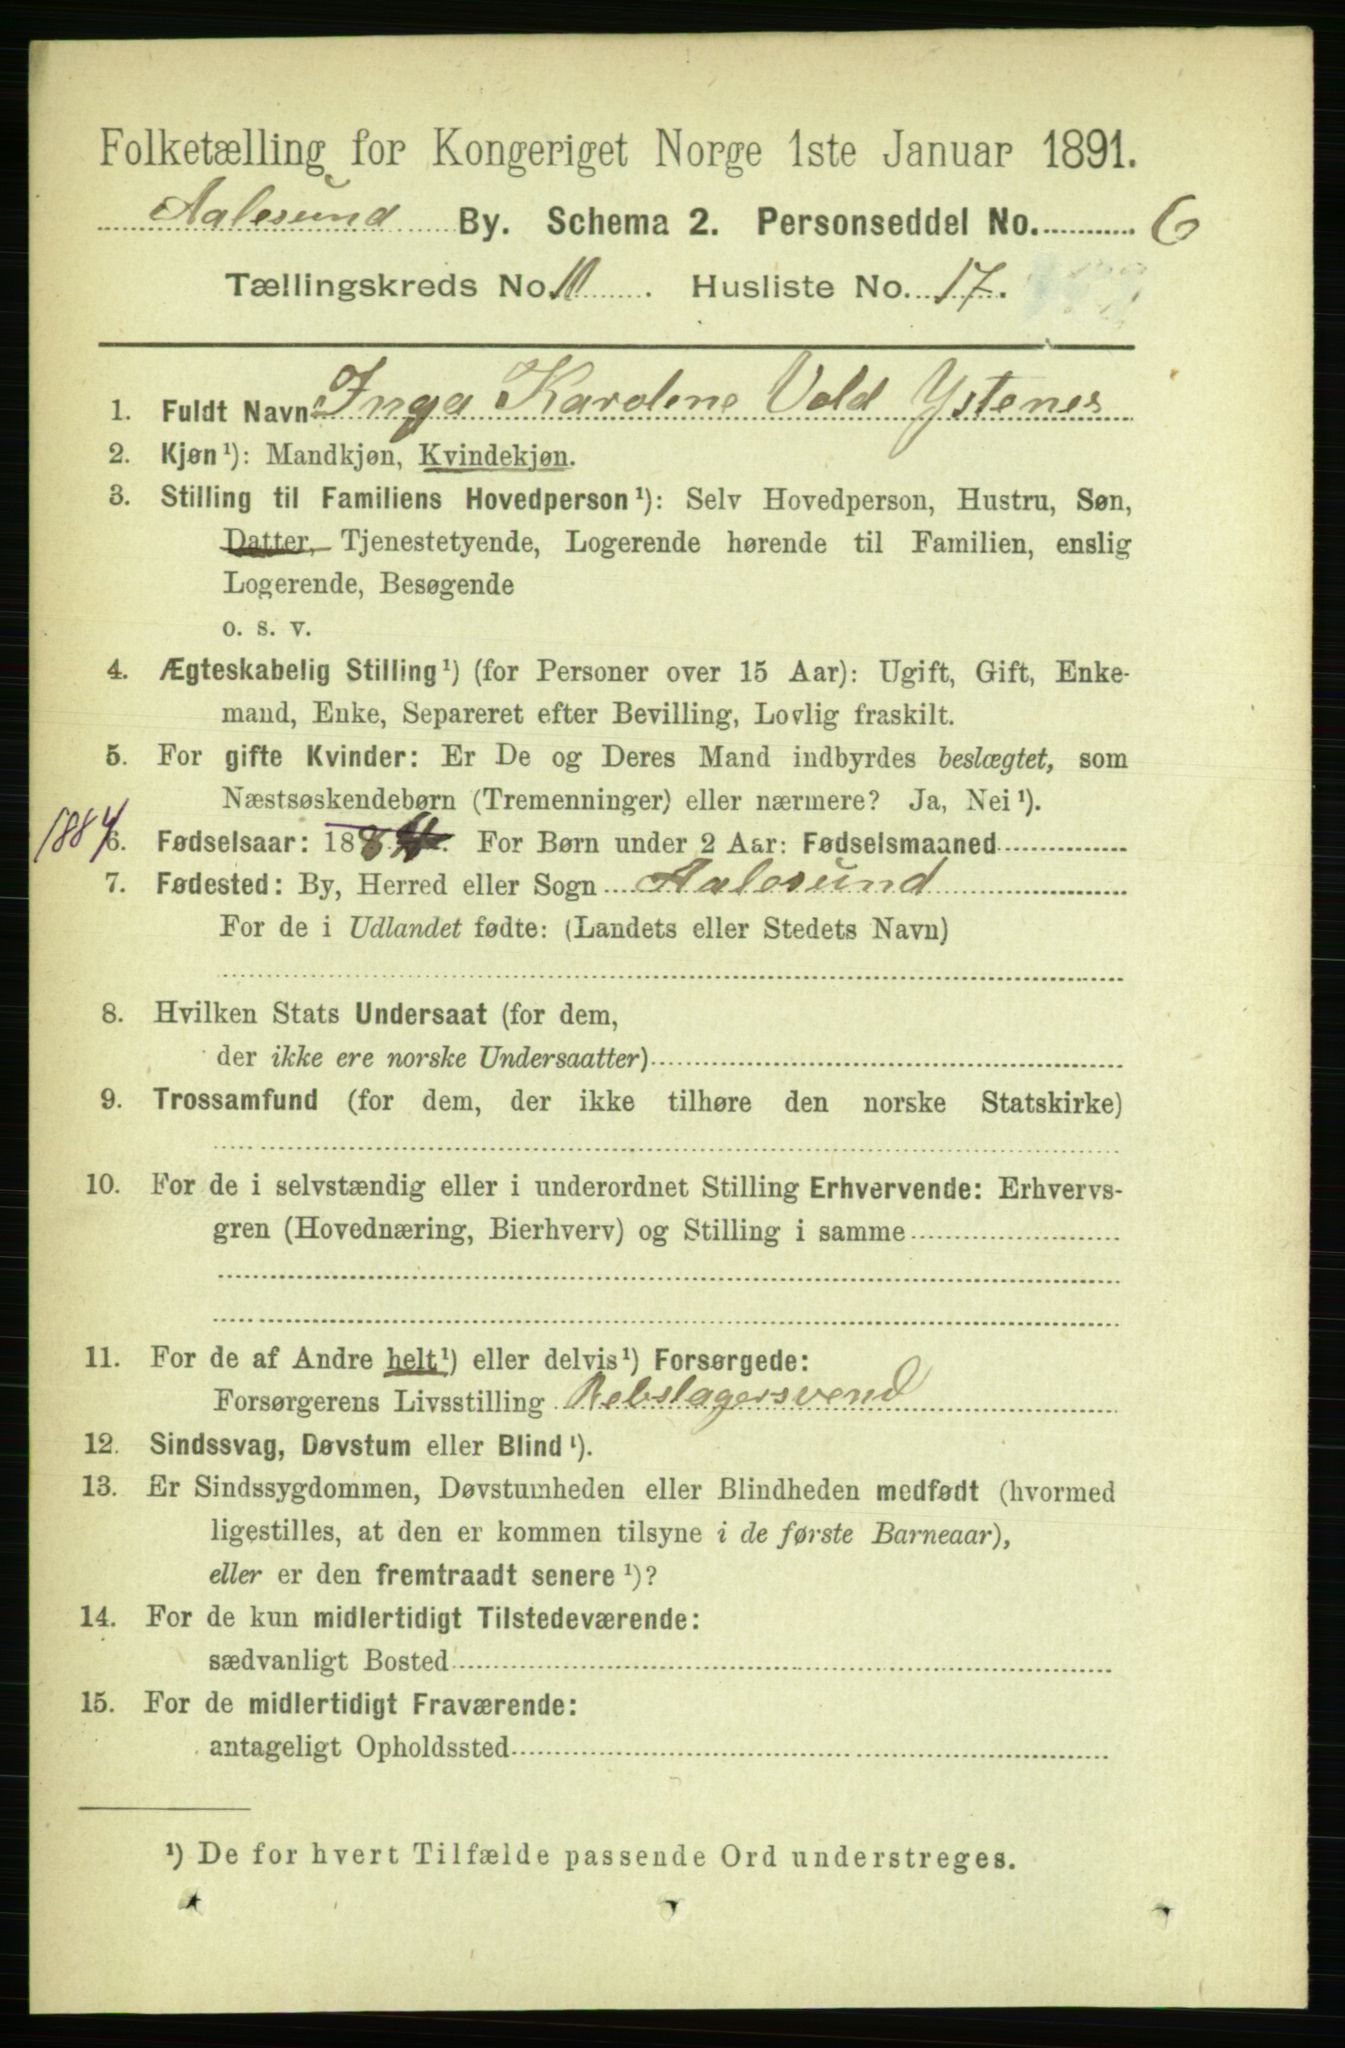 Folketælling for Kongeriget Norge 1ste Januar 1891.
Aalesund By. Schema 2. Personseddel No. 6
Tællingskreds No. 11. Husliste No. 17.
1. Fuldt Navn: Inga Karoline Vold Ystenes
2. Kjøn¹): Mandkjøn, Kvindekjøn.
3. Stilling til Familiens Hovedperson¹): Selv Hovedperson, Hustru, Søn,
Datter, Tjenestetyende, Logerende hørende til Familien, enslig
Logerende, Besøgende
o. s. v.
4. Ægteskabelig Stilling¹) (for Personer over 15 Aar): Ugift, Gift, Enke-
mand, Enke, Separeret efter Bevilling, Lovlig fraskilt.
5. For gifte Kvinder: Er De og Deres Mand indbyrdes beslægtet, som
Næstsøskendebørn (Tremenninger) eller nærmere? Ja, Nei¹).
1884
6. Fødselsaar: 188 . For Børn under 2 Aar: Fødselsmaaned
7. Fødested: By, Herred eller Sogn Aalesund
For de i Udlandet fødte: (Landets eller Stedets Navn)
8. Hvilken Stats Undersaat (for dem,
der ikke ere norske Undersaatter)
9. Trossamfund (for dem, der ikke tilhøre den norske Statskirke)
10. For de i selvstændig eller i underordnet Stilling Erhvervende: Erhvervs-
gren (Hovednæring, Bierhverv) og Stilling i samme
11. For de af Andre helt¹) eller delvis¹) Forsørgede:
Forsørgerens Livsstilling Rebslagersvend
12. Sindssvag, Døvstum eller Blind¹).
13. Er Sindssygdommen, Døvstumheden eller Blindheden medfødt (hvormed
ligestilles, at den er kommen tilsyne i de første Barneaar),
eller er den fremtraadt senere¹)?
14. For de kun midlertidigt Tilstedeværende:
sædvanligt Bosted
15. For de midlertidigt Fraværende:
antageligt Opholdssted
¹) De for hvert Tilfælde passende Ord understreges.